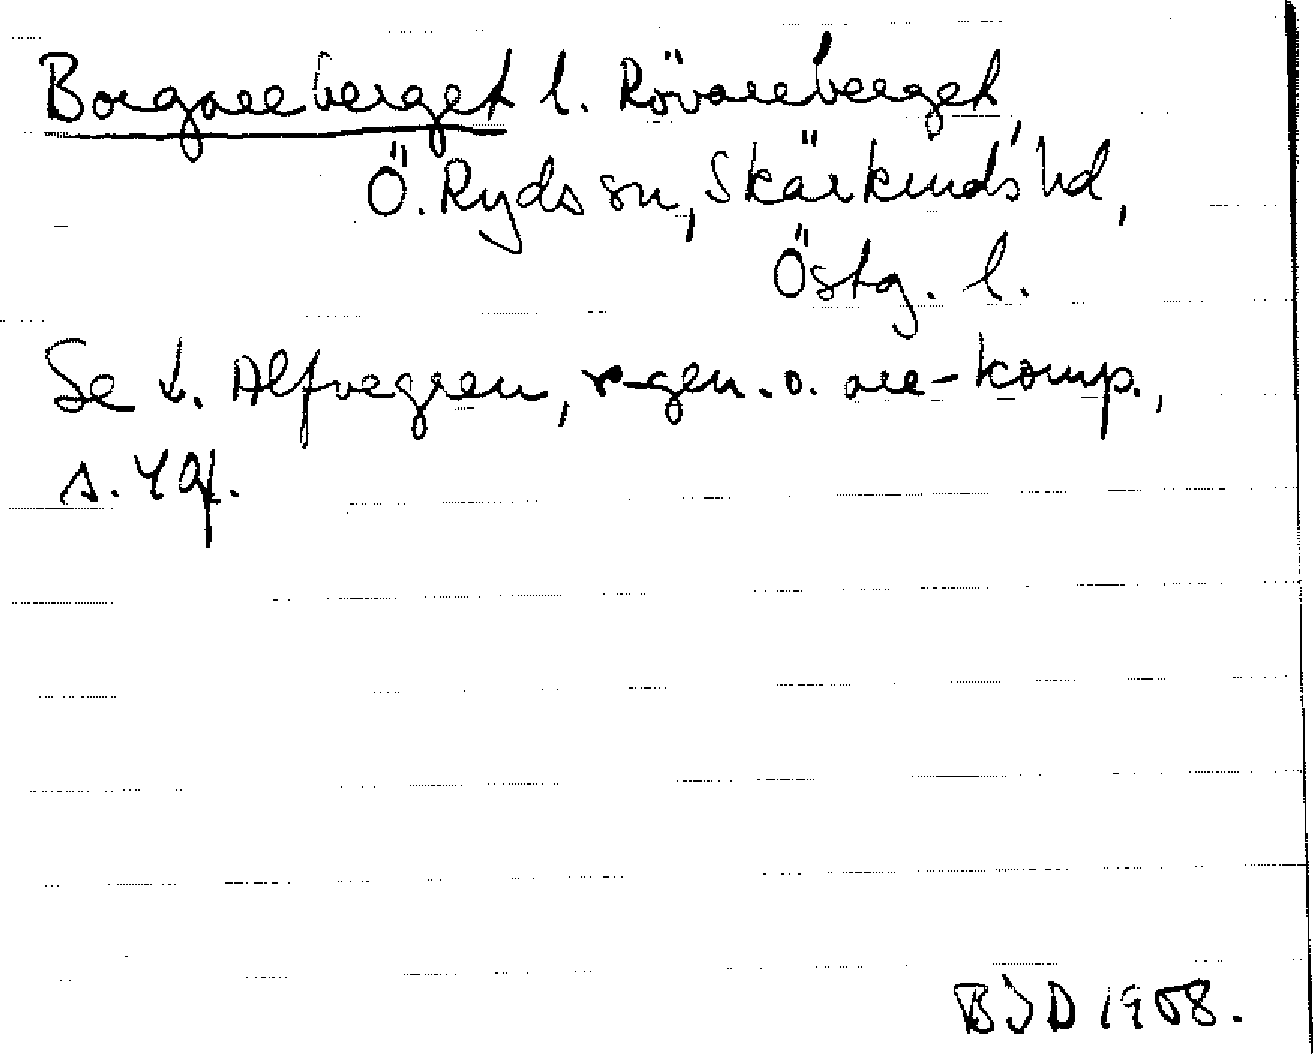 Borgareberget l. Rövareberget,
Ö. Ryds sn, Skärkinds hd,
Östg. l.
Se L. Alfvegren, r-gen. o. are-komp.,
s. 49f.
BJD 1958.